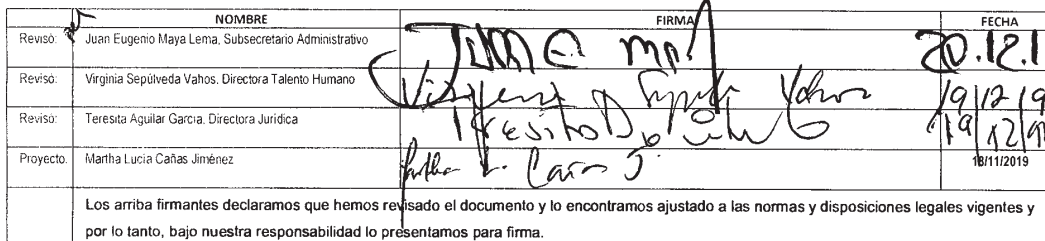 NOMBRE FIRMA FECHA
Revisó: Juan Eugenio Maya Lema, Subsecretario Administrativo 20.12.1
Revisó: Virginia Sepúlveda Vahos. Directora Talento Humano Virginia Sepúlveda Vahos 19/12/19
Revisó: Teresita Aguilar García. Directora Jurídica Teresita 19/12/19
Proyecto. Martha Lucia Cañas Jiménez Martha L. Cañas J. 18/11/2019
Los arriba firmantes declaramos que hemos revisado el documento y lo encontramos ajustado a las normas y disposiciones legales vigentes y
por lo tanto, bajo nuestra responsabilidad lo presentamos para firma.